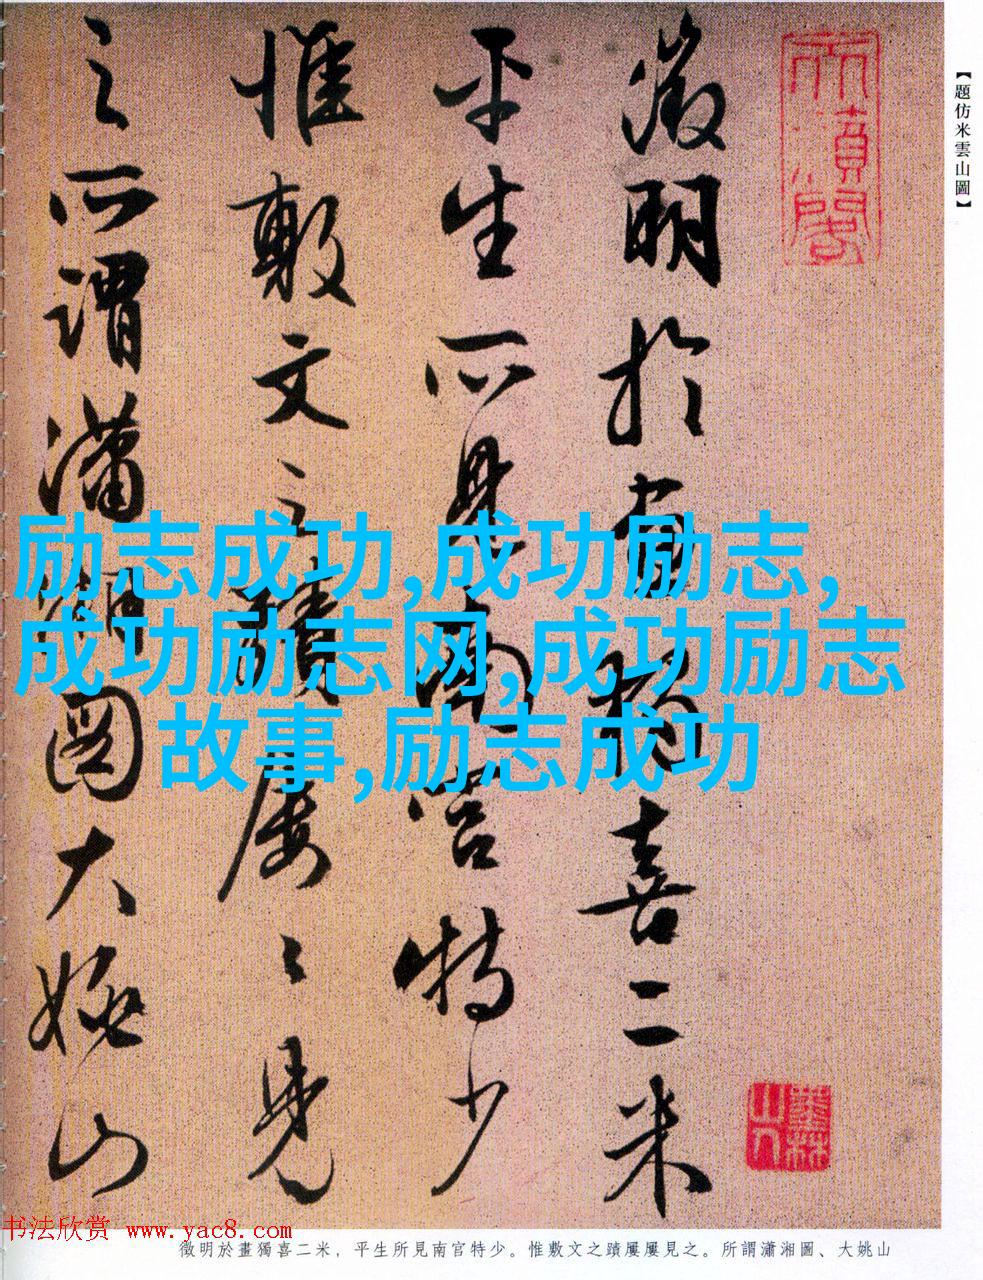 【題仿米雲山圖】
徵明於畫獨喜二米
平生所見南宮特少
惟敷文之蹟屢〻見
之所謂瀟湘圖大姚山
墨林山人
励志成功,成功励志,
成功励志网,成功励志
故事,励志成功
书法欣赏 www.yac8.com
徵明於畫獨喜二米，平生所見南官特少。惟敷文之蹟屢屢見之。所謂瀟湘圖、大姚山